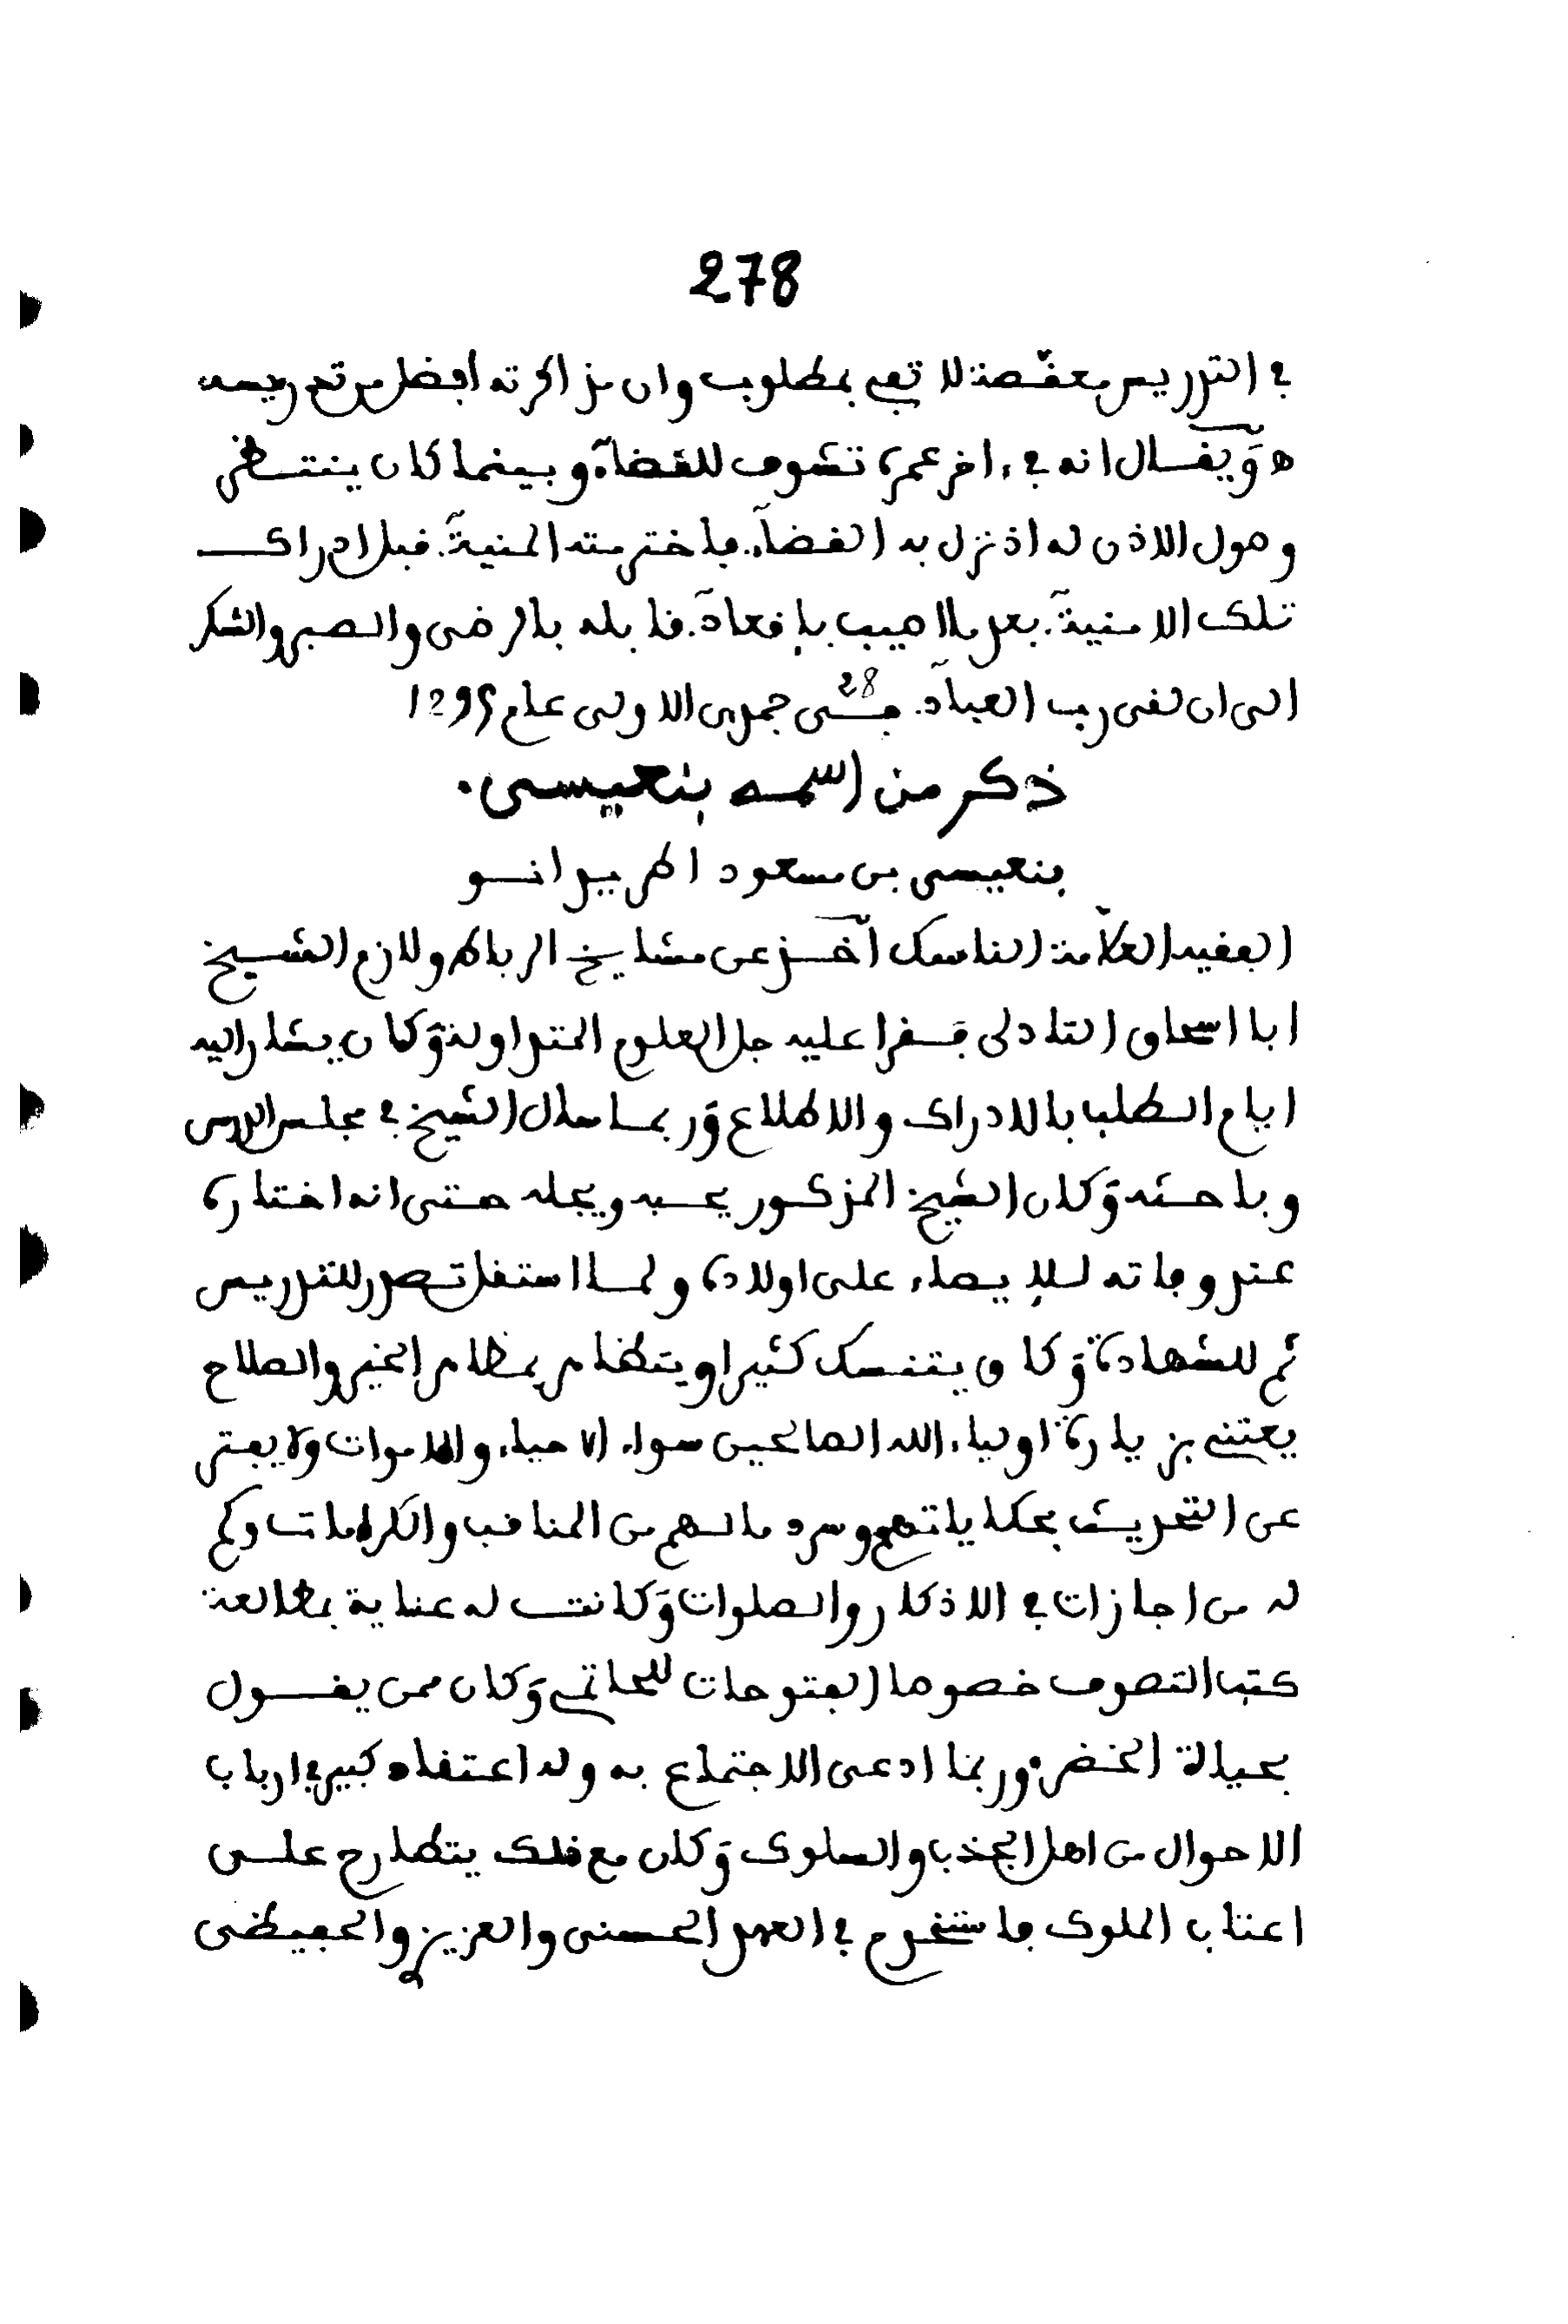 278
في التدريس معقصة لا تفي بمطلوب وان مذاكرته افضل من تدريسه
ه ويقال انه في ءاخر عمره تشوف للقضاء وبينما كان ينتظر
وصول الاذن له اذ نزل به القضاء. فاخترمته المنية. قبل ادراك
تلك الامنية. بعد ما اصيب باقعاد. قابله بالرضى والصبر والشكر
الى ان لقى رب العباد. في 28 جمدى الاولى عام 1295
ذكر من اسمه بنعيسى.
بنعيسى بن مسعود الهريدانو
الفقيه العلامة الناسك اخذ عن مشايخ الرباط ولازم الشيخ
ابا اسحاق التادلى فقرا عليه جل العلوم المتداولة وكان يشار اليه
ايام الطلب بالادراك والاطلاع وربما سال الشيخ في مجلس الدرس
وباحثه وكان الشيخ المذكور يحبه ويجله حتى انه اختاره
عند وفاته للايصاء على اولاده ولما استقل تصدر للتدريس
ثم للشهادة وكان يتنسك كثيرا ويتظاهر بمظاهر الخير والصلاح
يعتني بزيارة اولياء الله الصالحين سواء الاحياء والاموات ولا يفتر
عن التحديث بحكاياتهم وسرد ما لهم من المناقب والكرامات وكم
له من اجازات في الاذكار والصلوات وكانت له عناية بمطالعة
كتب التصوف خصوصا الفتوحات للحاتمي وكان ممن يقول
بحياة الخضر وربما ادعى الاجتماع به وله اعتقاد كبير في ارباب
الاحوال من اهل الجذب والسلوك وكان مع ذلك يتطارح على
اعتاب الملوك فاستخدم في العهد الحسنى والعزيزي والحفيظى